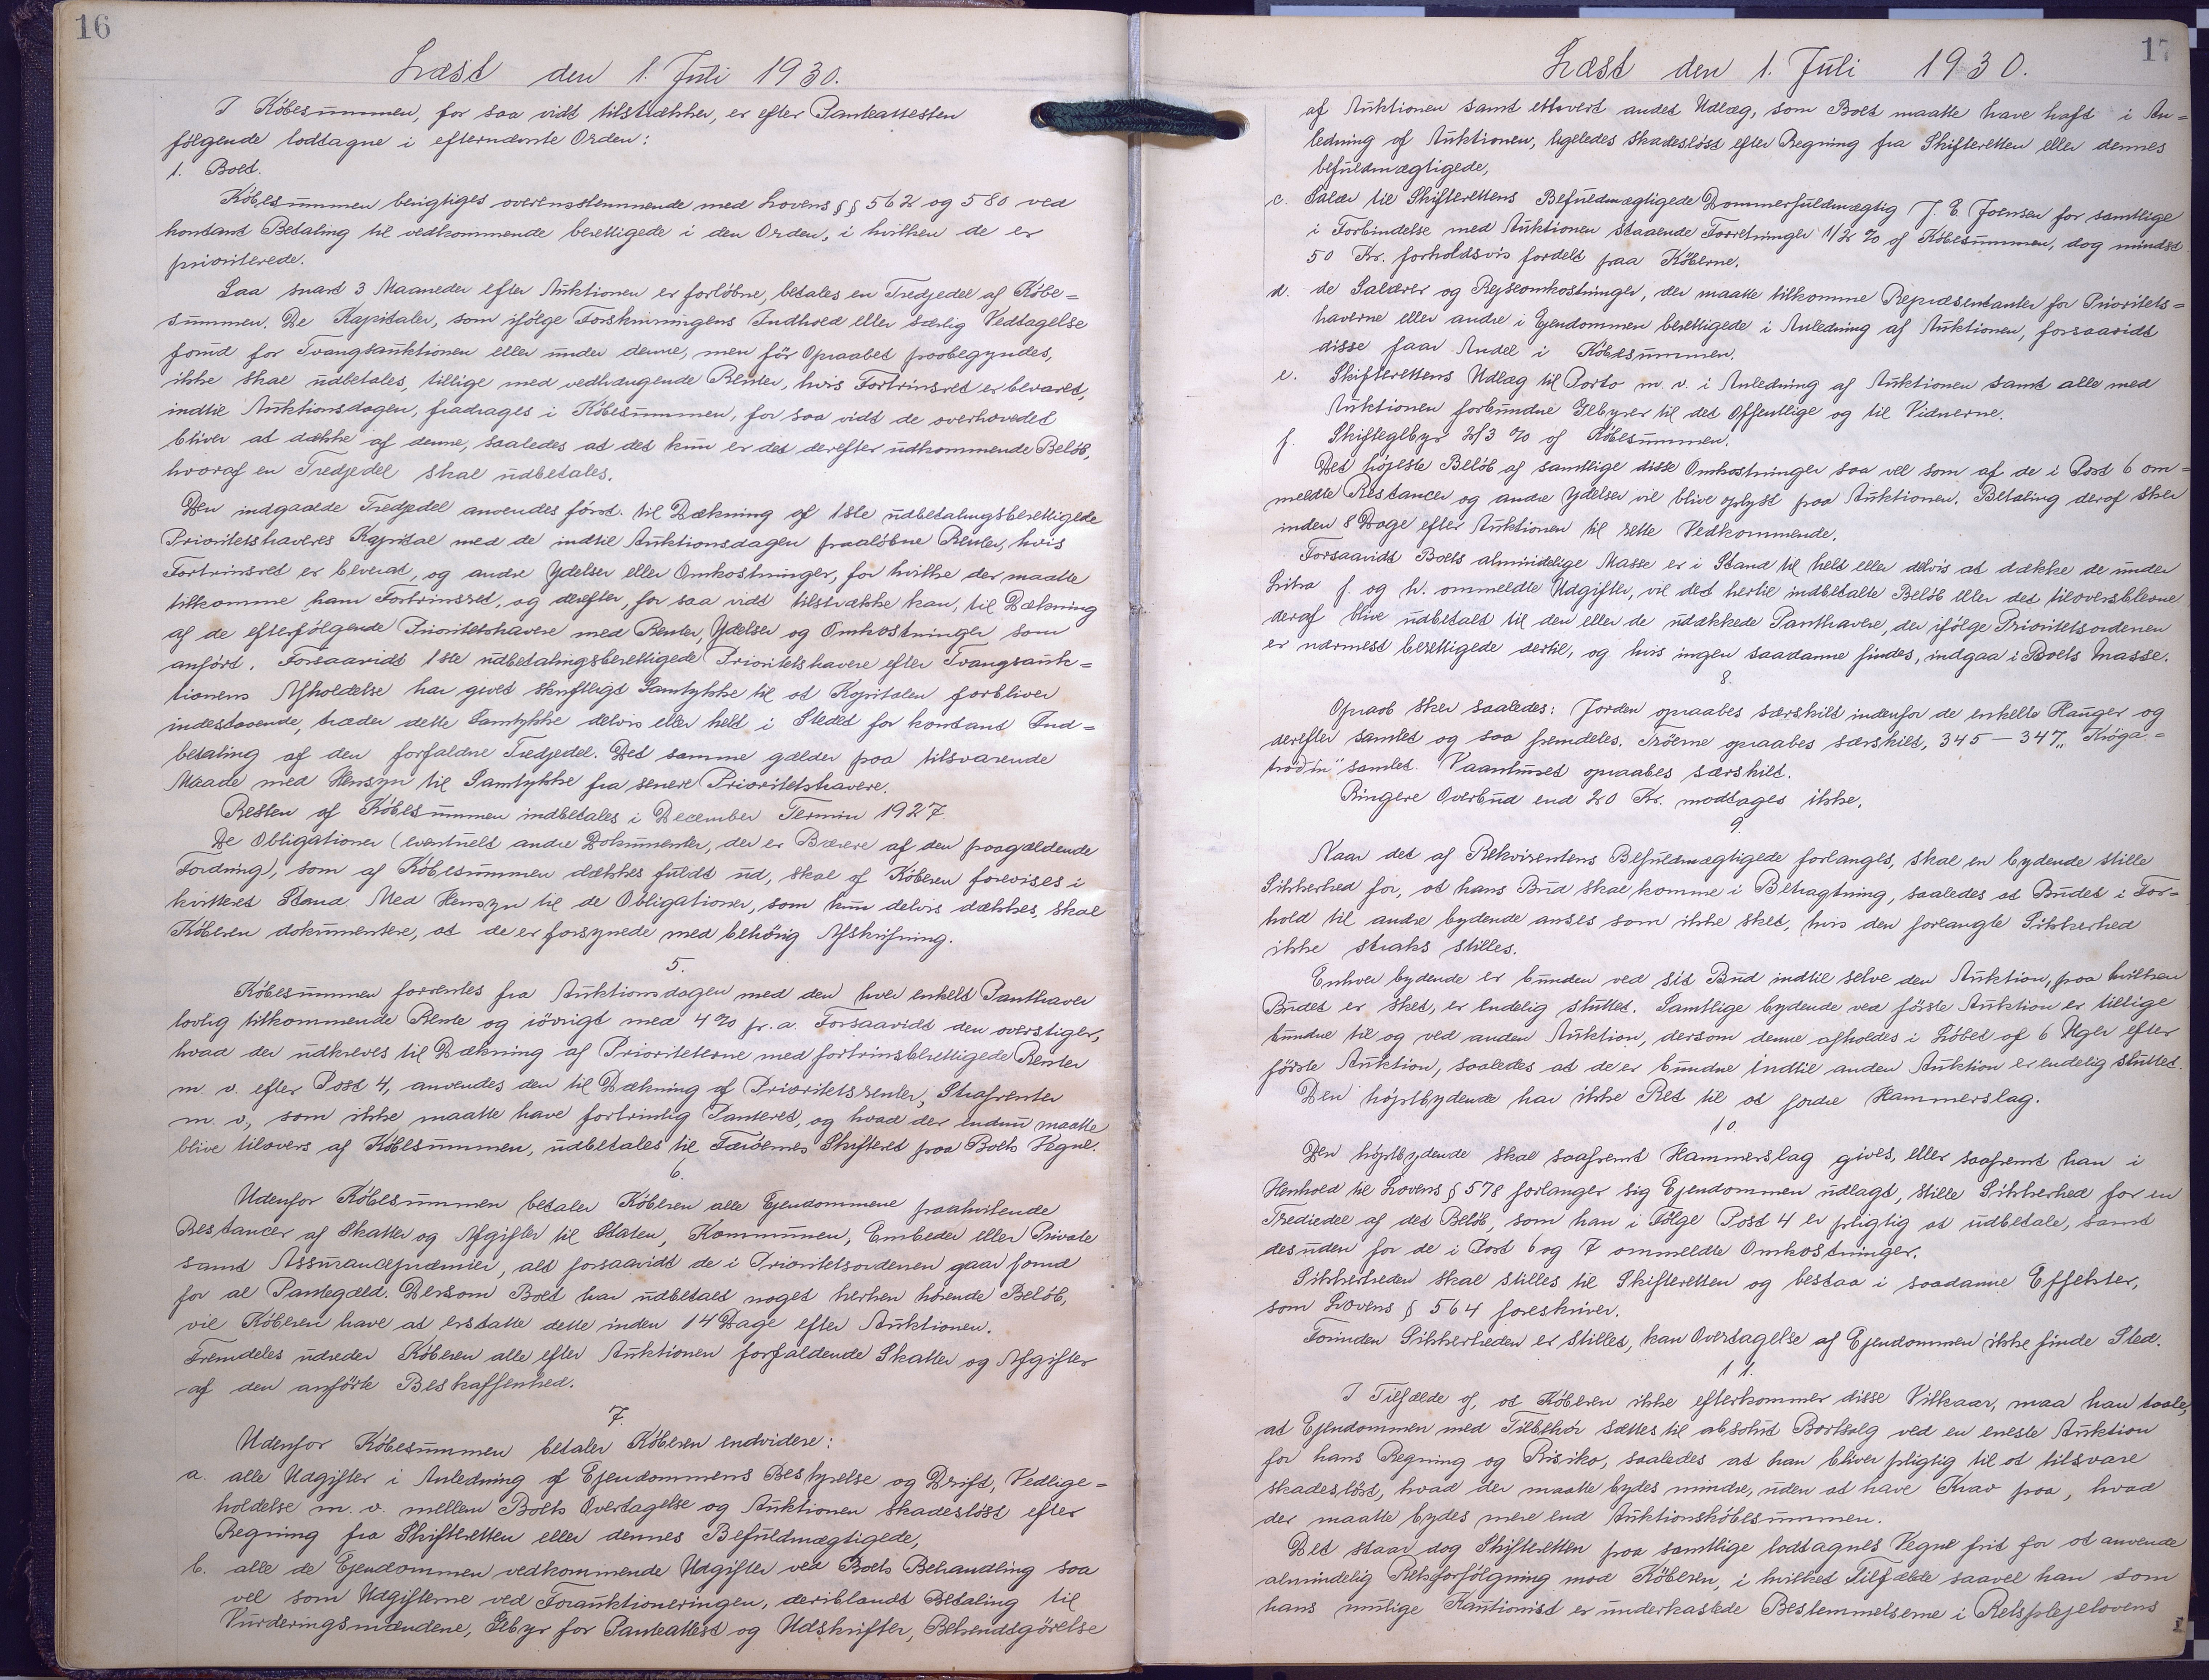 16
Læst den 1. Juli 1930.
I Købesummen, for saa vidt tilstrækker, er efter Panteattesten
følgende lodtagne i efternævnte Orden:
1. Boet.
Købesummen berigtiges overensstemmende med Lovens §§ 562 og 580 ved
kontant Betaling til vedkommende berettigede i den Orden, i hvilken de er
prioriterede.
Saa snart 3 Maaneder efter Auktionen er forløbne, betales en Tredjedel af Købe=
summen. De Kapitaler, som ifølge Forskrivningens Indhold eller særlig Vedtagelse
forud for Tvangsauktionen eller under denne, men før Opraabet paabegyndes,
ikke skal udbetales, tillige med vedhængende Renter, hvis Fortrinsret er bevaret,
indtil Auktionsdagen, fradrages i Købesummen, for saa vidt de overhovedet
bliver at dække af denne, saaledes at det kun er det derefter udkommende Beløb,
hvoraf en Tredjedel skal udbetales.
Den indgaaede Tredjedel anvendes først til Dækning af 1ste udbetalingsberettigede
Prioritetshaveres Kapital med de indtil Auktionsdagen paaløbne Renter, hvis
Fortrinsret er bevaret, og andre Ydelser eller Omkostninger, for hvilke der maatte
tilkomme ham Fortrinsret, og derefter, for saa vidt tilstrække kan, til Dækning
af de efterfølgende Prioritetshavere med Renter, Ydelser og Omkostninger som
anført. Forsaavidt 1ste udbetalingsberettigede Prioritetshavere efter Tvangsauk=
tionens Afholdelse har givet skriftligt Samtykke til at Kapitalen forbliver
indestaaende, træder dette Samtykke delvis eller helt i Stedet for kontant Ind=
betaling af den forfaldne Tredjedel. Det samme gælder paa tilsvarende
Maade med Hensyn til Samtykke fra senere Prioritetshavere.
Resten af Købesummen indbetales i December Termin 1927.
De Obligationer (eventuelt andre Dokumenter, der er Bærere af den paagældende
Fordring), som af Købesummen dækkes fuldt ud, skal af Køberen forevises i
kvitteret Stand. Med Hensyn til de Obligationer, som kun delvis dækkes, skal
Køberen dokumentere, at de er forsynede med behørig Afskrivning.
5.
Købesummen forrentes fra Auktionsdagen med den hver enkelt Panthaver
lovlig tilkommende Rente og iøvrigt med 4% pr. a. Forsaavidt den overstiger,
hvad der udkræves til Dækning af Prioriteterne med fortrinsberettigede Renter
m. v. efter Post 4, anvendes den til Dækning af Prioritetsrenter, Strafrenter
m. v., som ikke maatte have fortrinlig Panteret, og hvad der endnu maatte
blive tilovers af Købesummen, udbetales til Færøernes Skifteret paa Boets Vegne.
6.
Udenfor Købesummen betaler Køberen alle Ejendommene paahvilende
Restancer af Skatter og Afgifter til Staten, Kommunen, Embeder eller Private
samt Assurancepræmier, alt forsaavidt de i Prioritetsordenen gaar forud
for al Pantegæld. Dersom Boet har udbetalt noget herhen hørende Beløb,
vil Køberen have at erstatte dette inden 14 Dage efter Auktionen.
Fremdeles udreder Køberen alle efter Auktionen forfaldende Skatter og Afgifter
af den anførte Beskaffenhed.
7.
Udenfor Købesummen betaler Køberen endvidere:
a. alle Udgifter i Anledning af Ejendommens Bestyrelse og Drift, Vedlige=
holdelse m. v. mellem Boets Overtagelse og Auktionen skadesløst efter
Regning fra Skifteretten eller dennes Befuldmægtigede,
b. alle de Ejendommen vedkommende Udgifter ved Boets Behandling saa
vel som Udgifterne ved Forauktioneringen, deriblandt Betaling til
Vurderingsmændene, Gebyr for Panteattest og Udskrifter, Bekendtgørelse
17
Læst den 1. Juli 1930.
af Auktionen samt ethvert andet Udlæg, som Boet maatte have haft i An=
ledning af Auktionen, ligeledes skadesløst efter Regning fra Skifteretten eller dennes
befuldmægtigede,
c. Salær til Skifterettens Befuldmægtigede Dommerfuldmægtig J. E. Joensen for samtlige
i Forbindelse med Auktionen staaende Forretninger 1/2 % af Købesummen, dog mindst
50 Kr. forholdsvis fordelt paa Køberne.
d. de Salærer og Rejseomkostninger, der maatte tilkomme Repræsentanter for Prioritets=
haverne eller andre i Ejendommen berettigede i Anledning af Auktionen, forsaavidt
disse faar Andel i Købesummen.
e. Skifterettens Udlæg til Porto m. v. i Anledning af Auktionen samt alle med
Auktionen forbundne Gebyrer til det Offentlige og til Vidnerne.
f. Skiftegebyr 2/3 % af Købesummen.
Det højeste Beløb af samtlige disse Omkostninger saa vel som af de i Post 6 om=
meldte Restancer og andre Ydelser vil blive oplyst paa Auktionen. Betaling deraf sker
inden 8 Dage efter Auktionen til rette Vedkommende.
Forsaavidt Boets almindelige Masse er i Stand til helt eller delvis at dække de under
Litra f. og h. ommeldte Udgifter, vil det hertil indbetalte Beløb eller det tiloversblevne
deraf blive udbetalt til den eller de udækkede Panthavere, der ifølge Prioritetsordenen
er nærmest berettigede dertil, og hvis ingen saadanne findes, indgaa i Boets Masse.
8.
Opraab sker saaledes: Jorden opraabes særskilt indenfor de enkelte Hauger og
derefter samlet og saa fremdeles. Trøerne opraabes særskilt, 345 — 347 „
samlet. opraabes særskilt.
Ringere Overbud end 20 Kr. modtages ikke.
9.
Naar det af Rekvirentens Befuldmægtigede forlanges, skal en bydende stille
Sikkerhed for, at hans Bud skal komme i Betragtning, saaledes at Budet i For=
hold til andre bydende anses som ikke sket, hvis den forlangte Sikkerhed
ikke straks stilles.
Enhver bydende er bunden ved sit Bud indtil selve den Auktion, paa hvilken
Budet er sket, er endelig sluttet. Samtlige bydende ved første Auktion er tillige
bundne til og ved anden Auktion, dersom denne afholdes i Løbet af 6 Uger efter
første Auktion, saaledes at de er bundne indtil anden Auktion er endelig sluttet.
Den højstbydende har ikke Ret til at fordre Hammerslag.
10.
Den højstbydende skal saafremt Hammerslag gives, eller saafremt han i
Henhold til Lovens § 578 forlanger sig Ejendommen udlagt, stille Sikkerhed for en
Trediedel af det Beløb, som han i Følge Post 4 er pligtig at udbetale, samt
desuden for de i Post 6 og 7 ommeldte Omkostninger.
Sikkerheden skal stilles til Skifteretten og bestaa i saadanne Effekter,
som Lovens § 564 foreskriver.
Forinden Sikkerheden er stillet, kan Overtagelse af Ejendommen ikke finde Sted.
11.
I Tilfælde af, at Køberen ikke efterkommer disse Vilkaar, maa han taale,
at Ejendommen med Tilbehør sættes til absolut Bortsalg ved en eneste Auktion
for hans Regning og Risiko, saaledes at han bliver pligtig til at tilsvare
skadesløst, hvad der maatte bydes mindre, uden at have Krav paa, hvad
der maatte bydes mere end Auktionskøbesummen.
Det staar dog Skifteretten paa samtlige lodtagnes Vegne frit for at anvende
almindelig Retsforfølgning mod Køberen, i hvilket Tilfælde saavel han som
hans mulige Kautionist er underkastede Bestemmelserne i Retsplejelovens